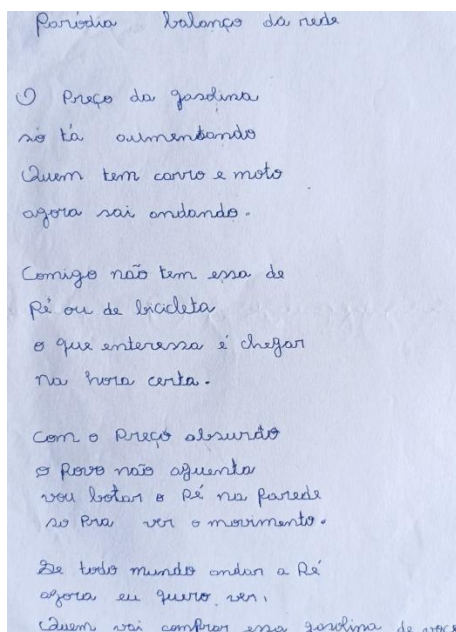 Paródia balanço da rede
O Preço da gasolina
só tá aumentando
Quem tem carro e moto
agora sai andando.
Comigo não tem essa de
Pé ou de bicicleta
o que enteressa é chegar
na hora certa.
Com o Preço absurdo
o Povo não aguenta
vou botar o Pé na parede
so Pra ver o movimento.
Se todo mundo andar a Pé
agora eu quero ver,
Quem vai comprar essa gasolina de você